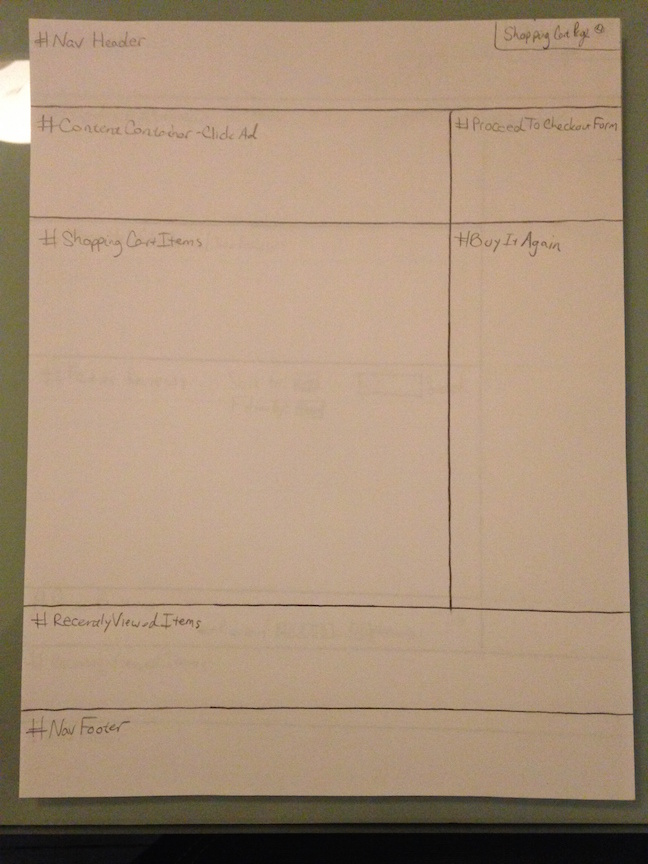 #Nav Header
Shopping Cart Page
#ContentContainer-Click Ad
#ProceedToCheckoutForm
#ShoppingCartItems
#BuyItAgain
#RecentlyViewedItems
#NavFooter